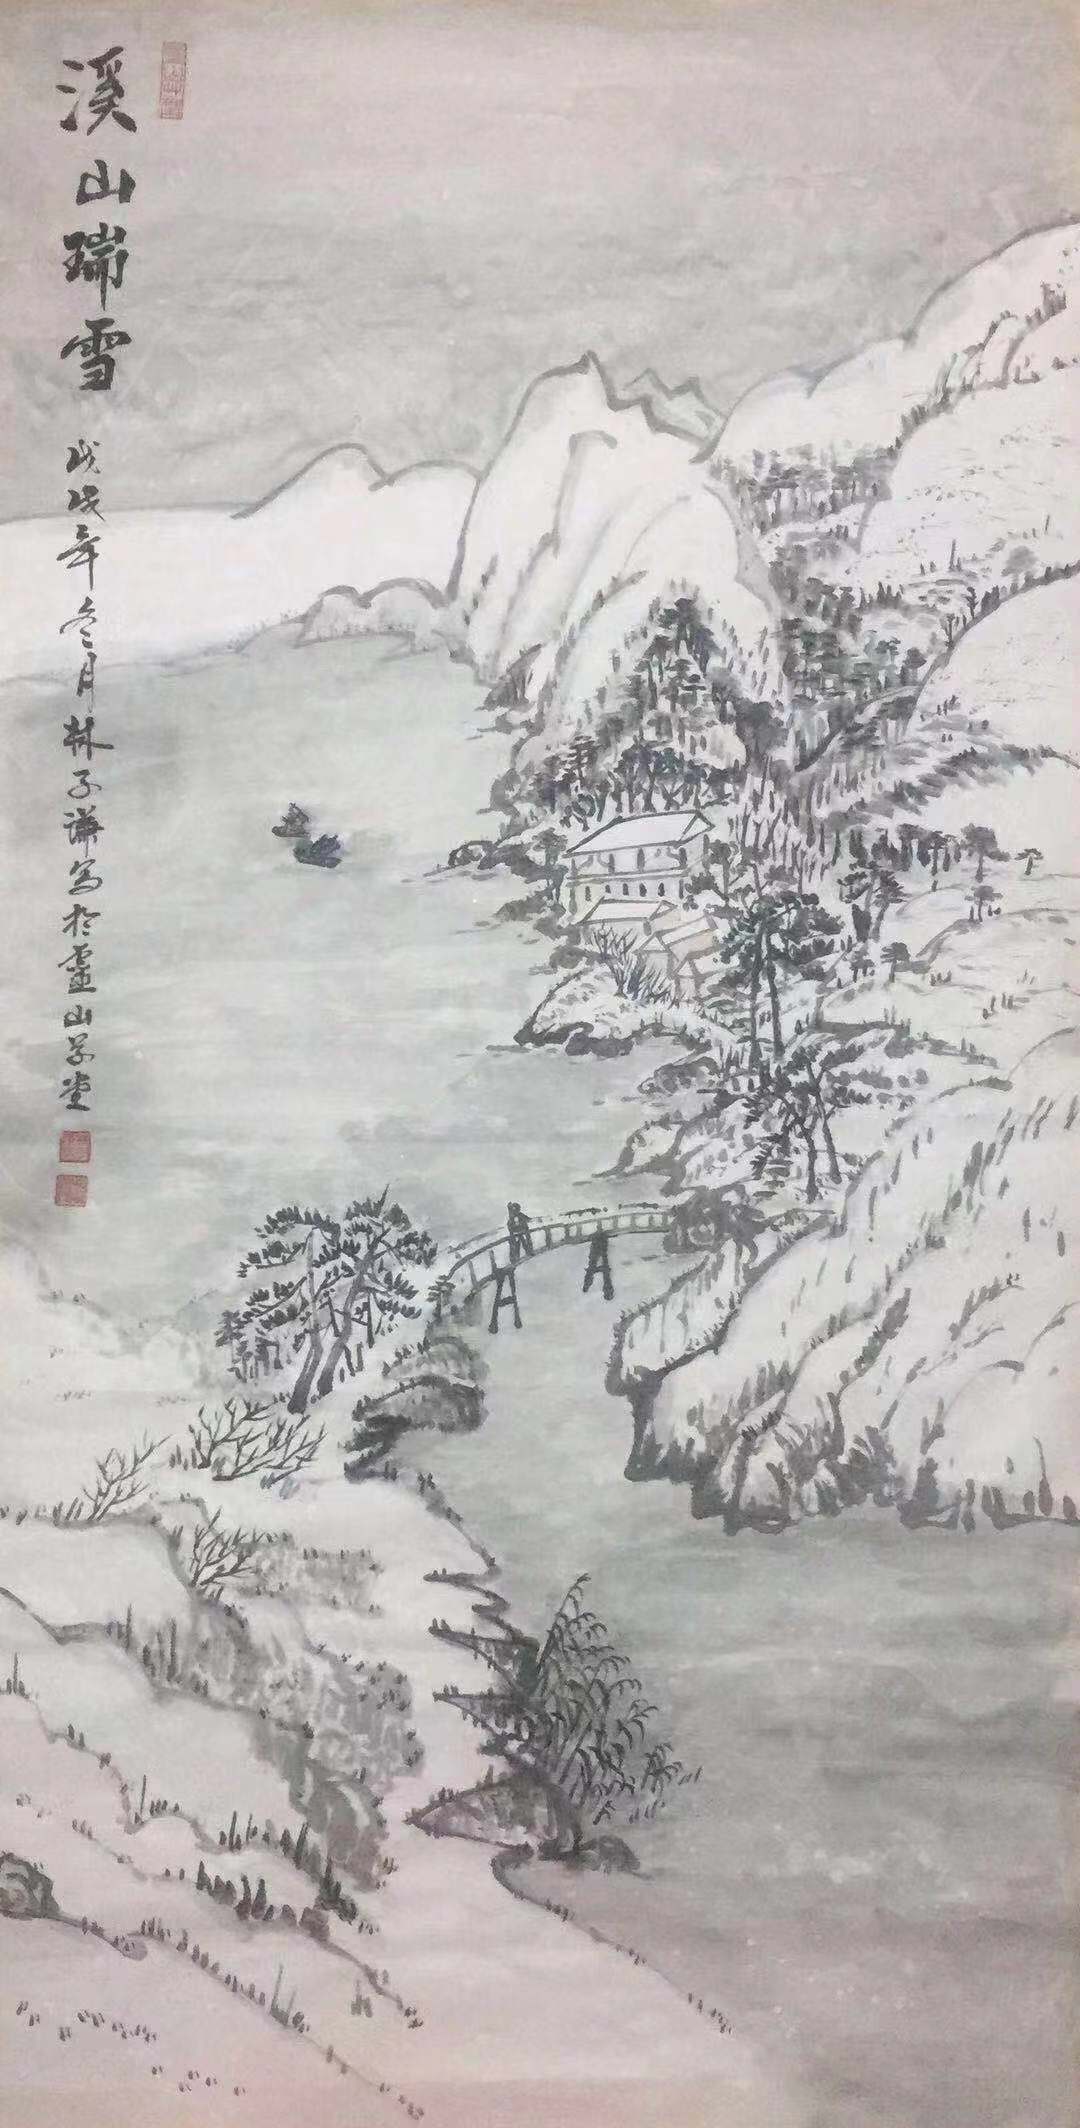 溪山瑞雪
戊戌年冬月林子謙写於靈山草堂